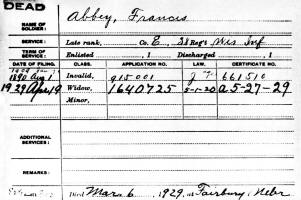 DEAD
NAME OF SOLDIER: Abbey, Francis
SERVICE: Late rank, Co. E, 38 Reg't Wis Inf
TERM OF SERVICE: Enlisted , 1 Discharged , 1
DATE OF FILING. CLASS. APPLICATION NO. LAW. CERTIFICATE NO.
1890 Aug Invalid, 915001 661510
1929 Apr 19 Widow, 1640725 5-1-20 a 5-27-29
Minor,
ADDITIONAL SERVICES:
REMARKS:
Died Mar 6 1929, at Fairbury, Nebr